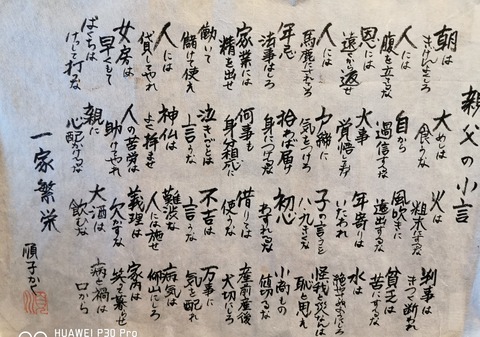 親父の小言
朝は
きげんよくしろ
人には
腹を立てるな
恩は
遠くから返せ
人には
馬鹿にされろ
年忌
法事はしろ
家業には
精を出せ
働いて
儲け使え
人には
貸してやれ
女房は
早くもて
ばくちは
けして打つな
大めしは
食うな
自から
過信するな
大事は
覚悟しておけ
戸締に
気をつけろ
拾わば届け
身につけるな
何事も
身分相応にしろ
泣きごとは
言うな
神仏は
よく拝ませ
人の苦労は
助けてやれ
親に
心配かけるな
火は
粗末にするな
風吹きに
遠出するな
年寄りは
いたわれ
子の言うこと
八九きくな
初心
わすれるな
借りては
使うな
不吉は
言うな
難渋な
人には施せ
義理は
欠かすな
大酒は
飲むな
判事は
きつく断われ
貧乏は
苦にするな
水は
絶やさぬようにしろ
怪我と災なんは
恥と思え
小商もの
値切るな
産前産後
大切にしろ
万事に
気を配れ
病気は
仰山にしろ
家内は
笑うて暮せ
病と禍は
口から
一家繁栄
順子かく
HUAWEI P30 Pro